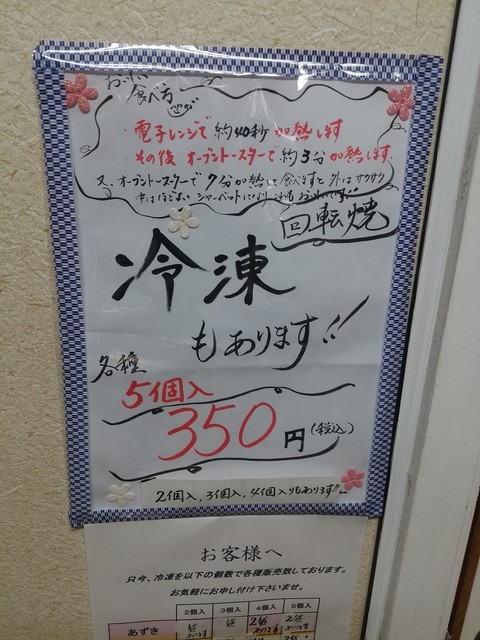 おいしい
食べ方
・電子レンジで 約40秒 加熱します
・その後 オーブントースターで 約3分 加熱します
又、オーブントースターで 7分加熱して食べますと 外はサクサク
中はほどよい シャーベットになり これも おいしいです!!
回転焼
冷凍
もあります!!
各種
5個入
350円(税込)
2個入、3個入、4個入りもあります!!
お客様へ
只今、冷凍を以下の個数で各種販売致しております。
お気軽にお申し付け下さいませ。
2個入 3個入 4個入 5個入
あずき 2袋 2袋